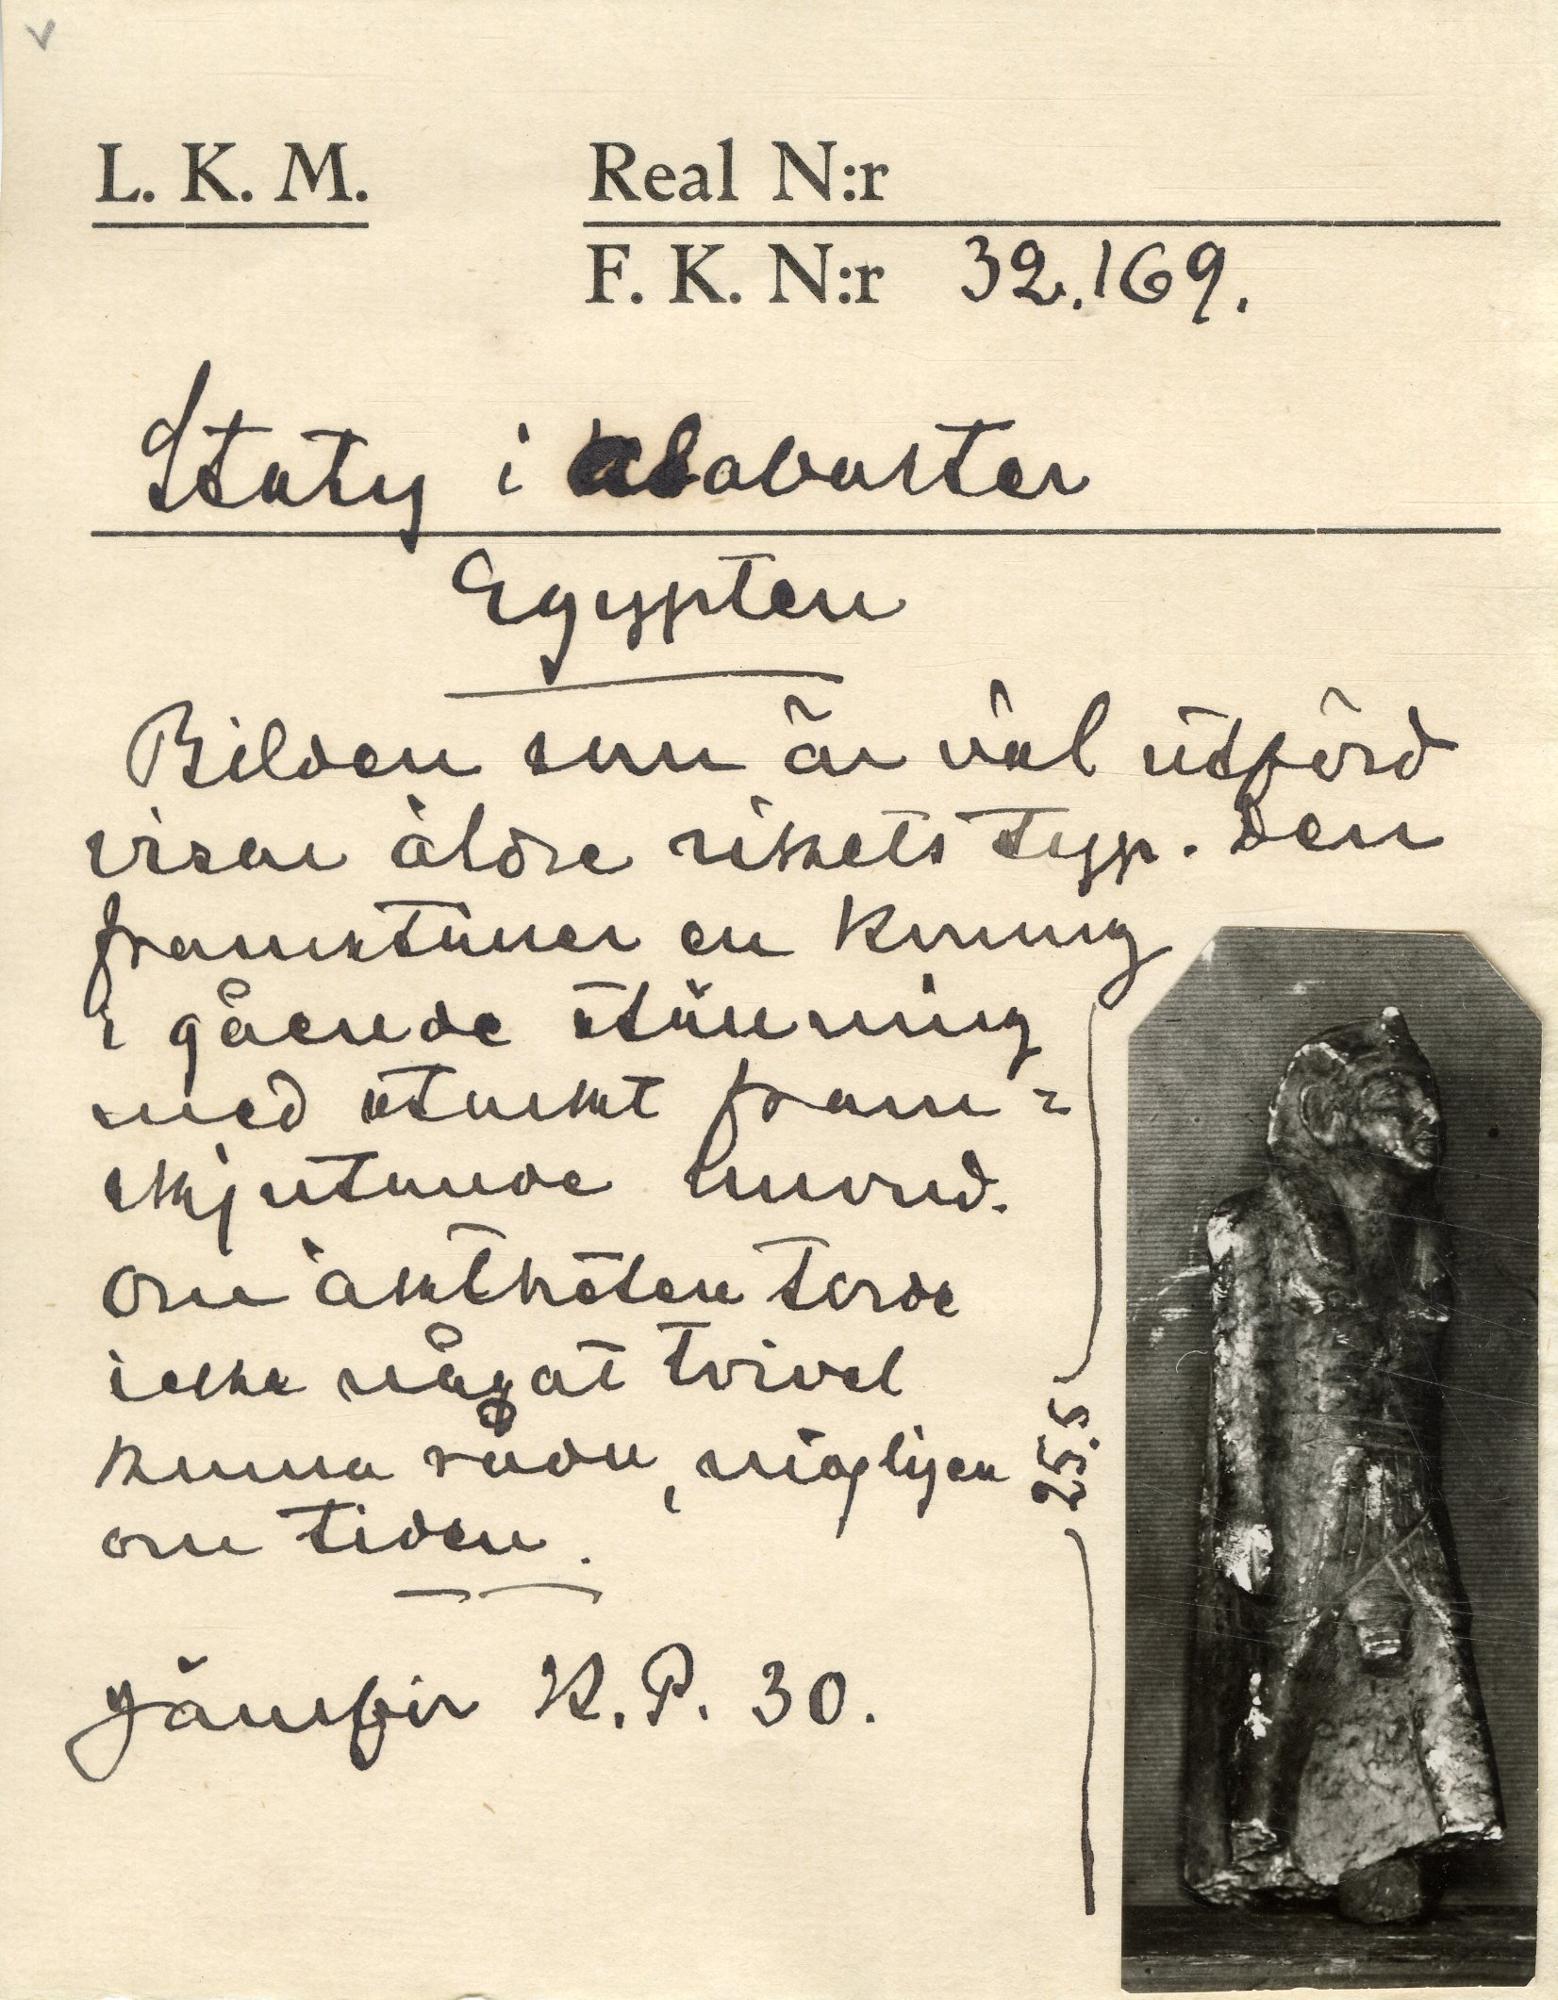 L. K. M.
Real N:r
F. K. N:r 32.169.
Staty i alabaster
Egypten
Bilden som är väl utförd
visar äldre rikets typ. Den
framställer en konung
i gående ställning
med starkt fram=
skjutande huvud.
Om äktheten torde
icke något tvivel
kunna råda, möjligen
om tiden.
Jämför K.P. 30.
25.5